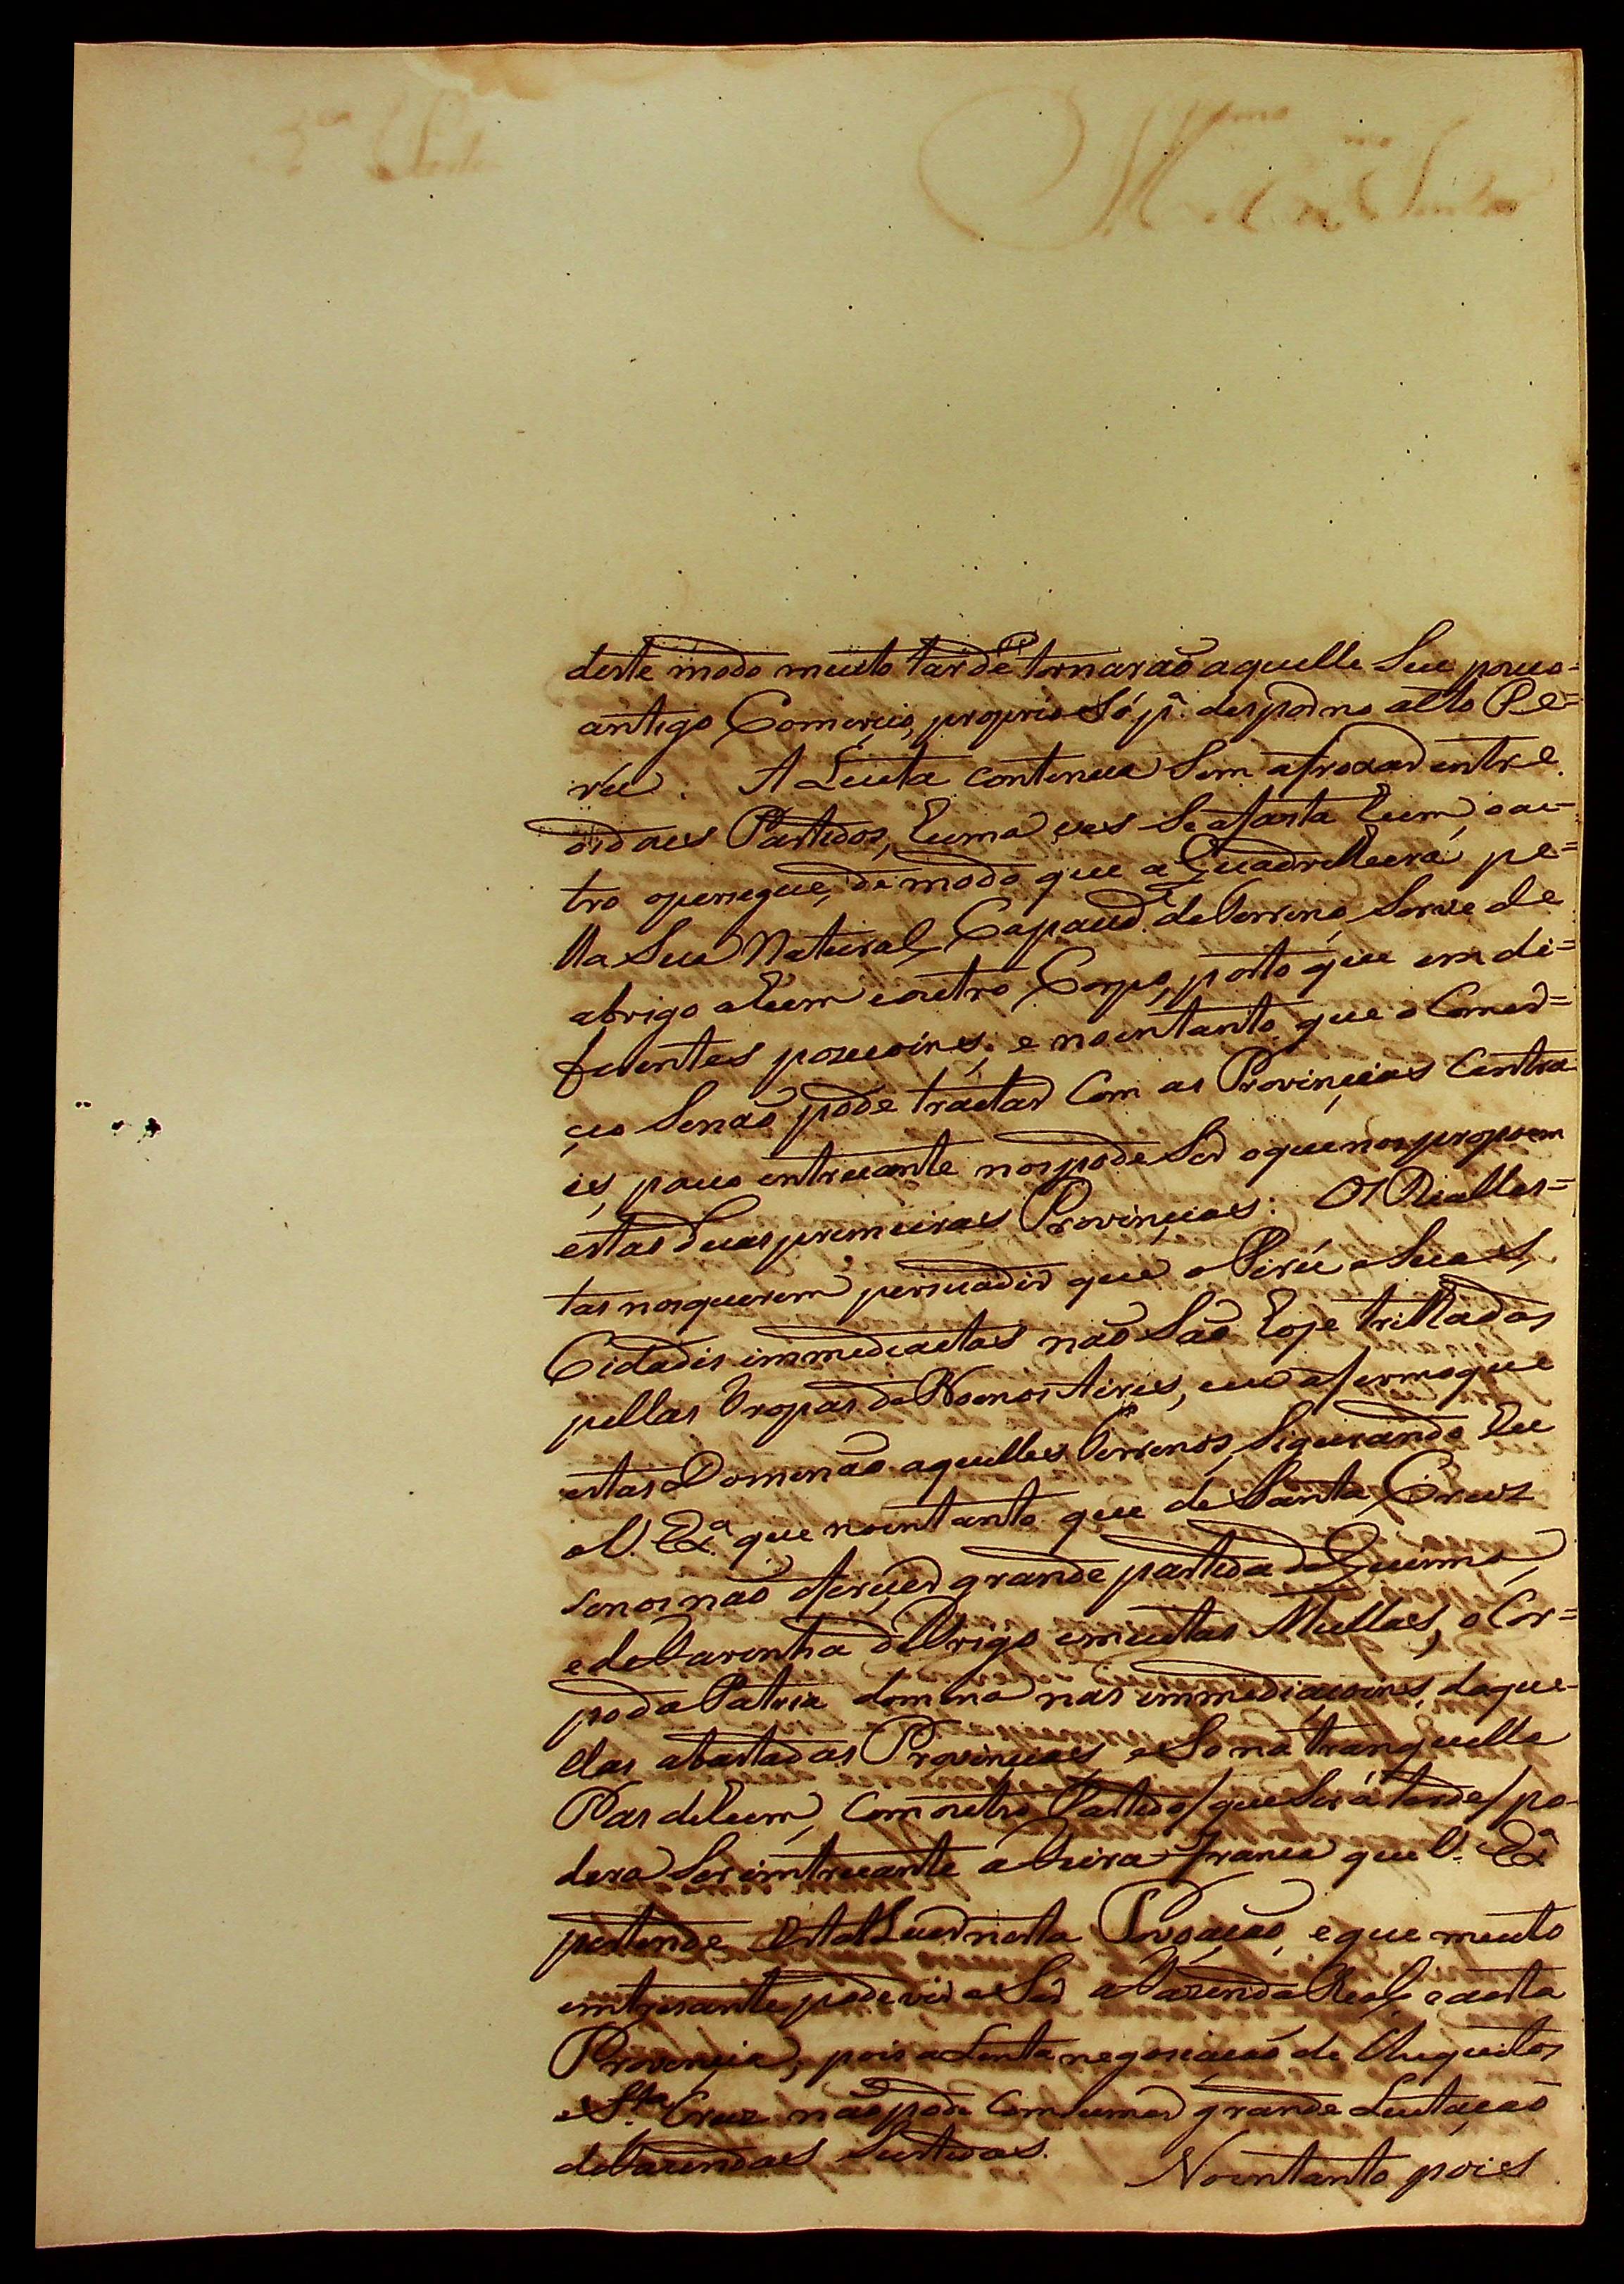 deste modo muito tarde tornaraõ aquelle Seu pouco=
antigo Comercio, proprio Só pª. despor no alto Pe=
rú. A Luita continua Sem afroxar entre
os dous Partidos, huma ves Se afasta hum, o ou=
tro o persegue, de modo que a Quadrilheira pe=
lla Sua Natural Capacid.e de Terreno, Serve de
abrigo a hum e outro Corpo, posto que em di=
ferentes pozicoins; e no entanto que o Comer=
çio Se naõ póde tractar Com as Provinçias Centra
is, pouco intreçante nos pode Ser o que nos propoem
estas duas primeiras Provinçias: Os Realles=
tas nos querem persuadir que o Pirú e Suas
Cidadis immediactas naõ Saõ hoje trilhadas
pellas Tropas de Boenos Airis, eu afermo que
estas Dominaõ aquelles Terrenos, Sigurando eu
a V. Exª. que no entanto que de Santa Cruz
Se nos naõ oferecer grande partida de
e de Farinha de Trigo e muitas Mullas, o Cor=
po da Patria domina nas immediaçoins daque-
llas abastadas Provincias, e So na tranquilla
Pas de hum, Com outro Partido / que Será tarde / po-
dera Ser intreçante a Feira Franca que V. Exª
pertende Estabeleçer nesta Povoaçaõ, e que muito
intresante pode vir a Ser a Fazenda Real, e a esta
Provinçia, pois a Lenta negosiaçaõ de Chiquitos
e S.ta Cruz naõ pode Comsumir grande Lutaçaõ
de Fazendas Surtidas. No entanto pois